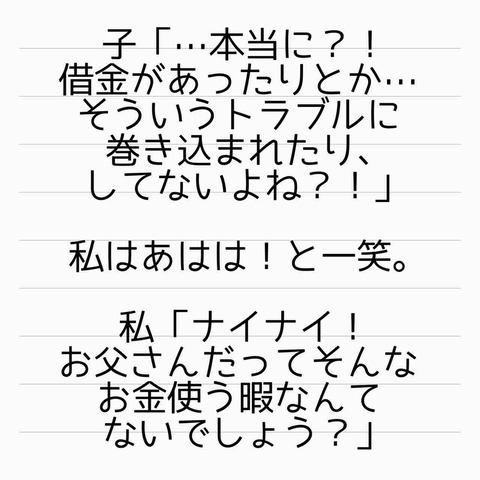 子「…本当に？！
借金があったりとか…
そういうトラブルに
巻き込まれたり、
してないよね？！」
私はあはは！と一笑。
私「ナイナイ！
お父さんだってそんな
お金使う暇なんて
ないでしょう？」